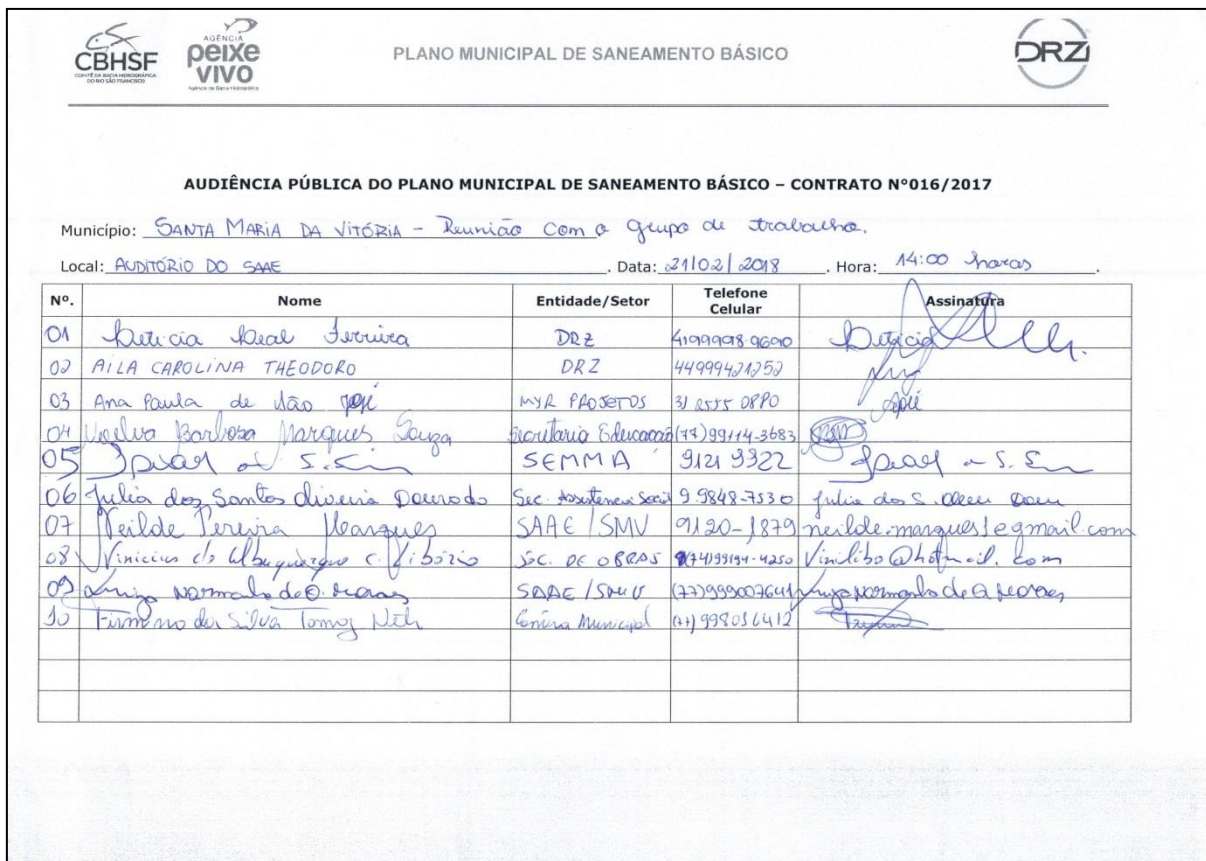 CBHSF
COMITÊ DA BACIA HIDROGRÁFICA
DO RIO SÃO FRANCISCO
AGÊNCIA
peixe
VIVO
Agência de Bacia Hidrográfica
PLANO MUNICIPAL DE SANEAMENTO BÁSICO
DRZ
AUDIÊNCIA PÚBLICA DO PLANO MUNICIPAL DE SANEAMENTO BÁSICO – CONTRATO Nº016/2017
Município: SANTA MARIA DA VITÓRIA - Reunião com o grupo de trabalho.
Local: AUDITÓRIO DO SAAE. Data: 21/02/2018. Hora: 14:00 horas.
Nº. Nome Entidade/Setor Telefone Celular Assinatura
01 Leticia Leal Ferreira DRZ Leticia
02 AILA CAROLINA THEODORO DRZ 44999421252
03 Ana Paula de São José MYR PROJETOS 31 2555 0880
04 Barbosa Marques Souza Secretaria Educação (77)99114-3683
05 SEMMA 9121 9322
06 Julia dos Santos Oliveira Dourado Sec. Assistencia Social 9.9848-7530 Julia dos S.
07 Neilde Pereira Marques SAAE/SMV 9120-1879 neilde.marques1@gmail.com
08 Vinicius de Albuquerque C. Libório SEC. DE OBRAS (74)99194-4250 Vinilibo@hotmail.com
09 Normando de O. Moraes SAAE/SMV (77)999007641 Normando de O Moraes
10 da Silva Tomaz Neto Câmara Municipal (77) 998036412